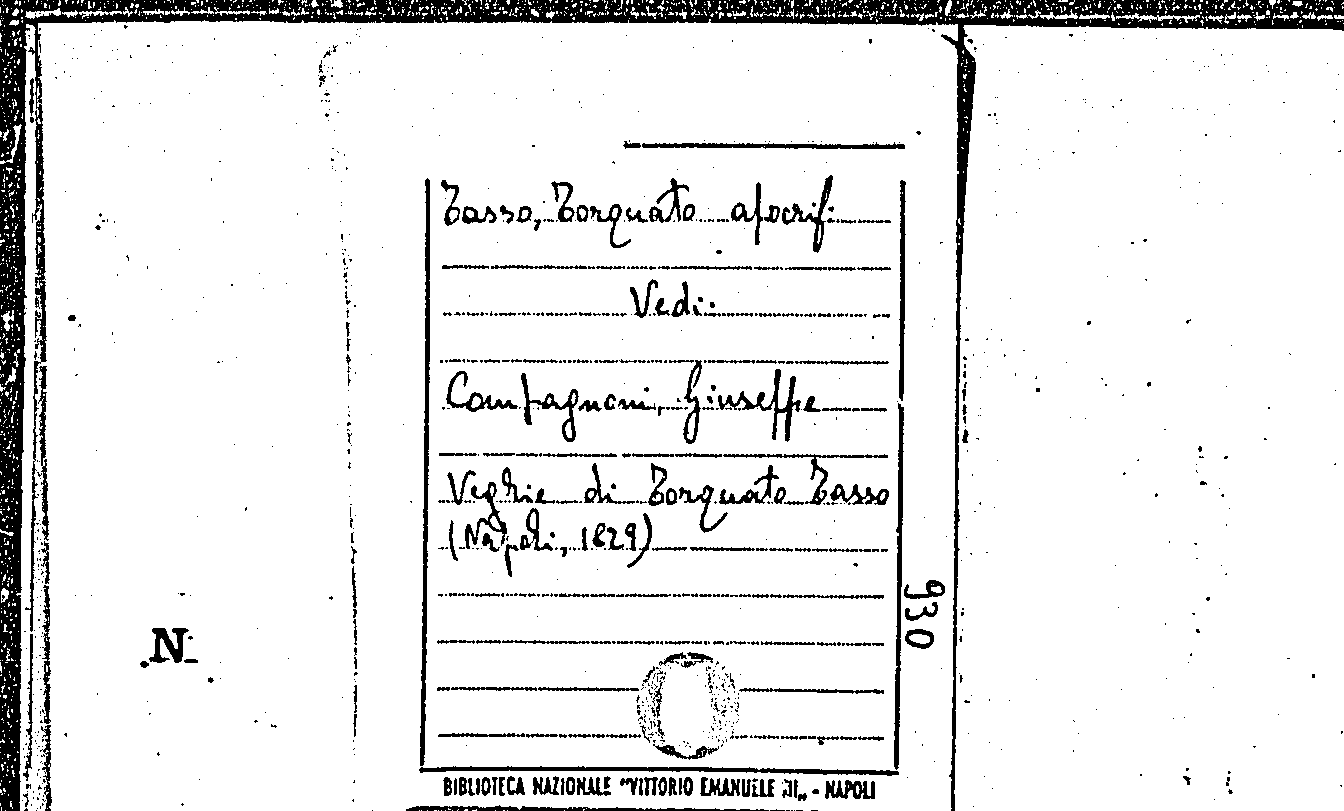 Tasso, Torquato apocrif.
Vedi:
Compagnoni, Giuseppe
Veghie di Torquato Tasso
(Napoli, 1829)
930
N.
BIBLIOTECA NAZIONALE "VITTORIO EMANUELE III„ - NAPOLI